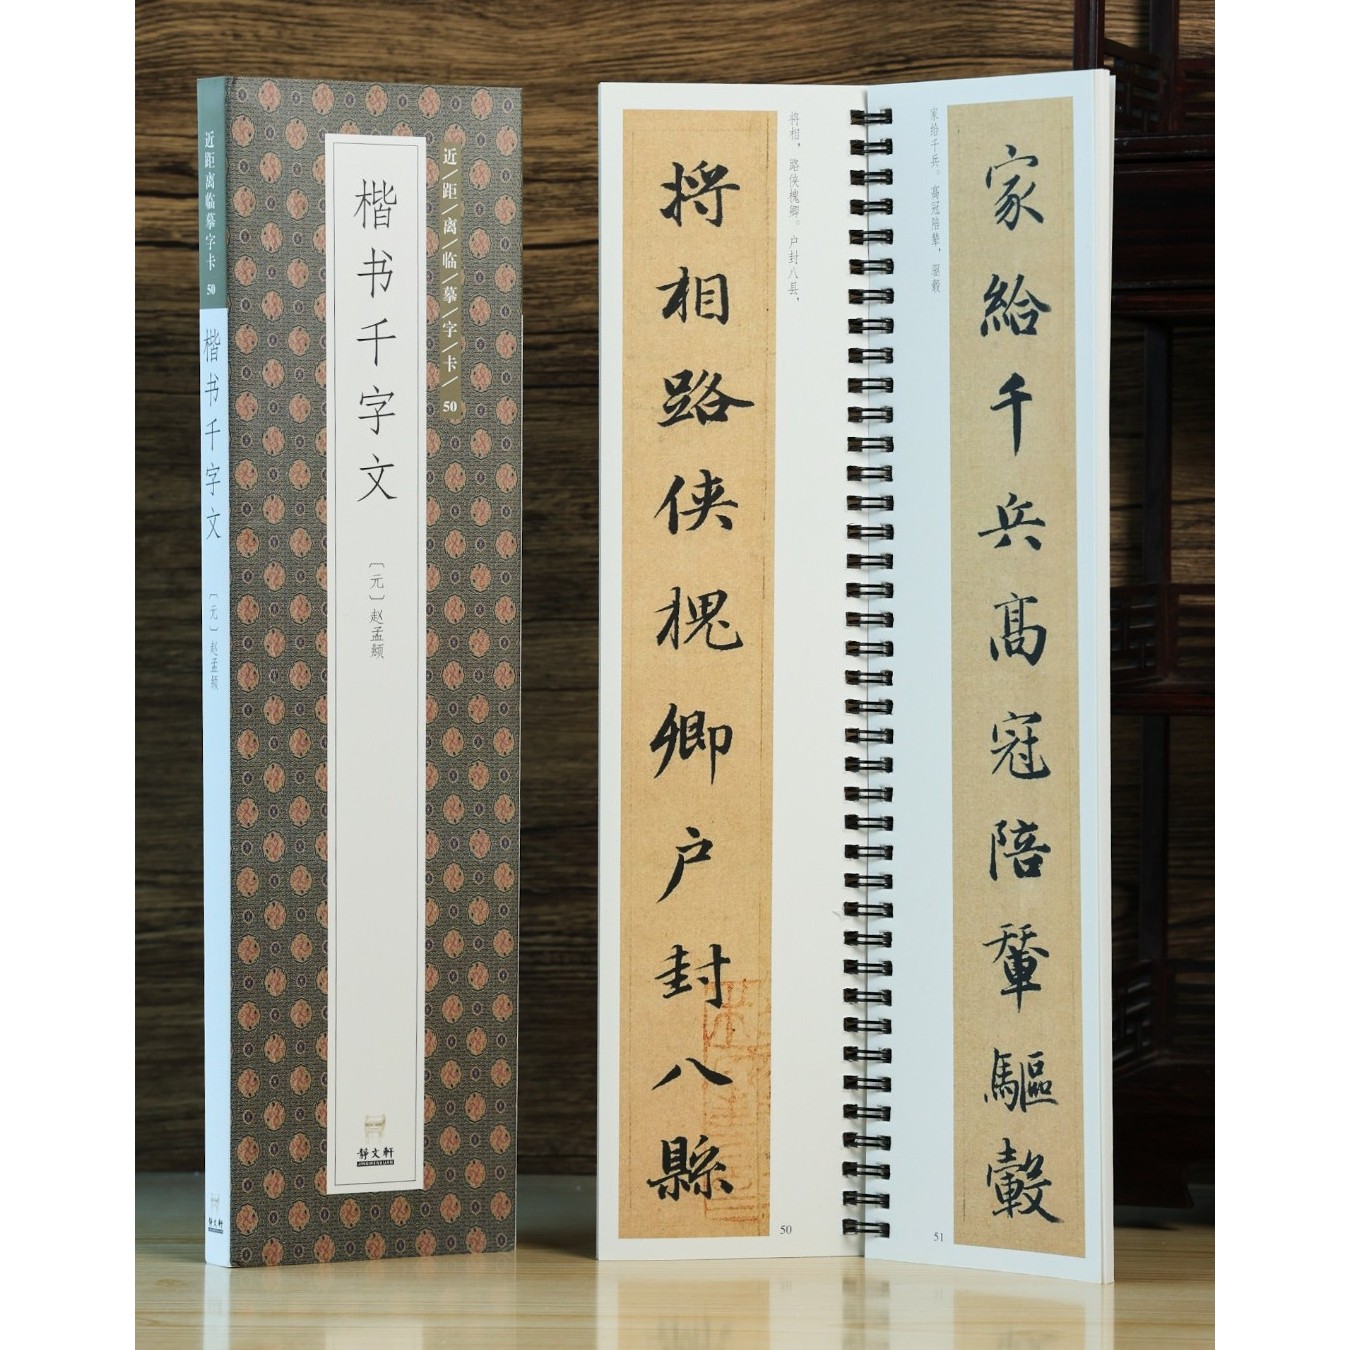 近距离临摹字卡 50
楷书千字文
〔元〕赵孟頫
靜文軒
近/距/离/临/摹/字/卡/ 50
楷书千字文
〔元〕赵孟頫
靜文軒
JINGWENXUAN
将相，路侠槐卿。户封八县，
將相路俠槐卿户封八縣
50
家给千兵。高冠陪辇，驱毂
家給千兵髙冠陪輦驅轂
51